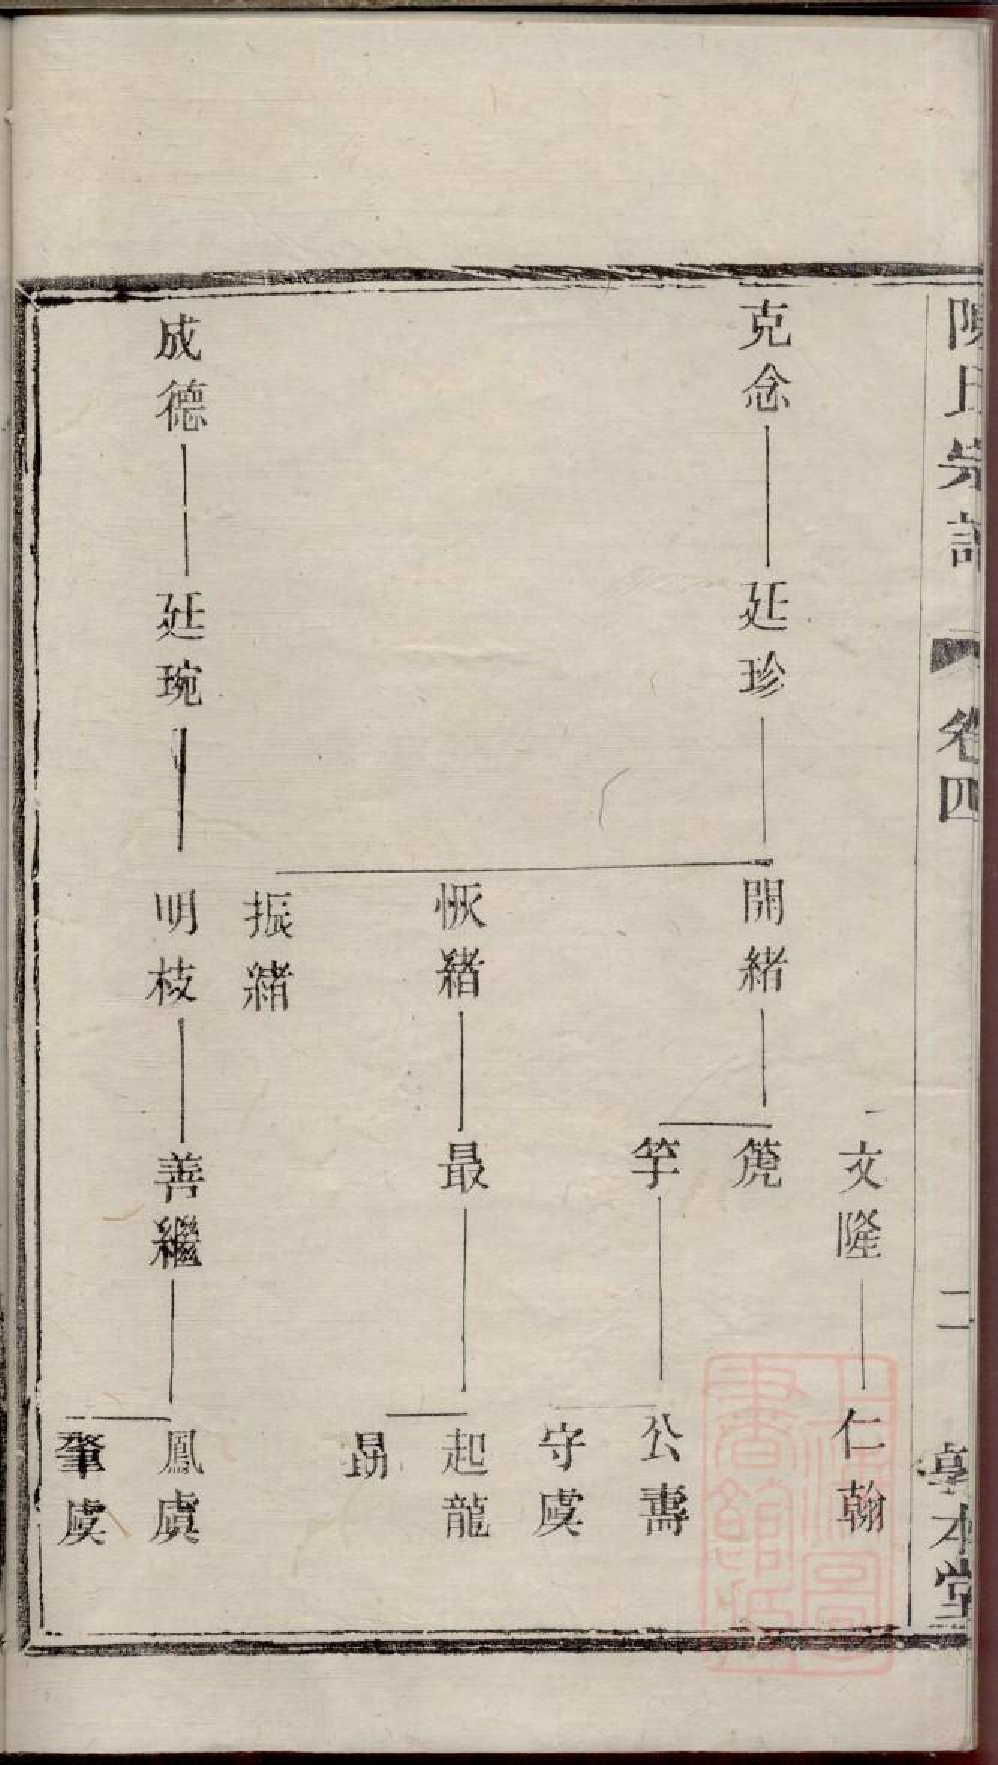 陳氏宗譜
卷四
二
敦本堂
文隆
仁翰
克念
延珍
開緒
箎
竽
公壽
守虞
恢緒
最
起龍
振緒
成德
延琬
明枝
善繼
鳳虞
肇虞